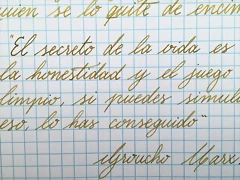 quien se lo quite de encim
"El secreto de la vida es
la honestidad y el juego
limpio, si puedes simula
eso, lo has conseguido"
Groucho Marx.